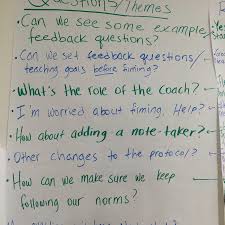 Questions/Themes
• Can we see some example
feedback questions?
• Can we set feedback questions/
teaching goals before fiming?
• What's the role of the coach?
• I'm worried about timing. Help?
• How about adding a note-taker?
• Other changes to the protocol?
• How can we make sure we keep
following our norms?